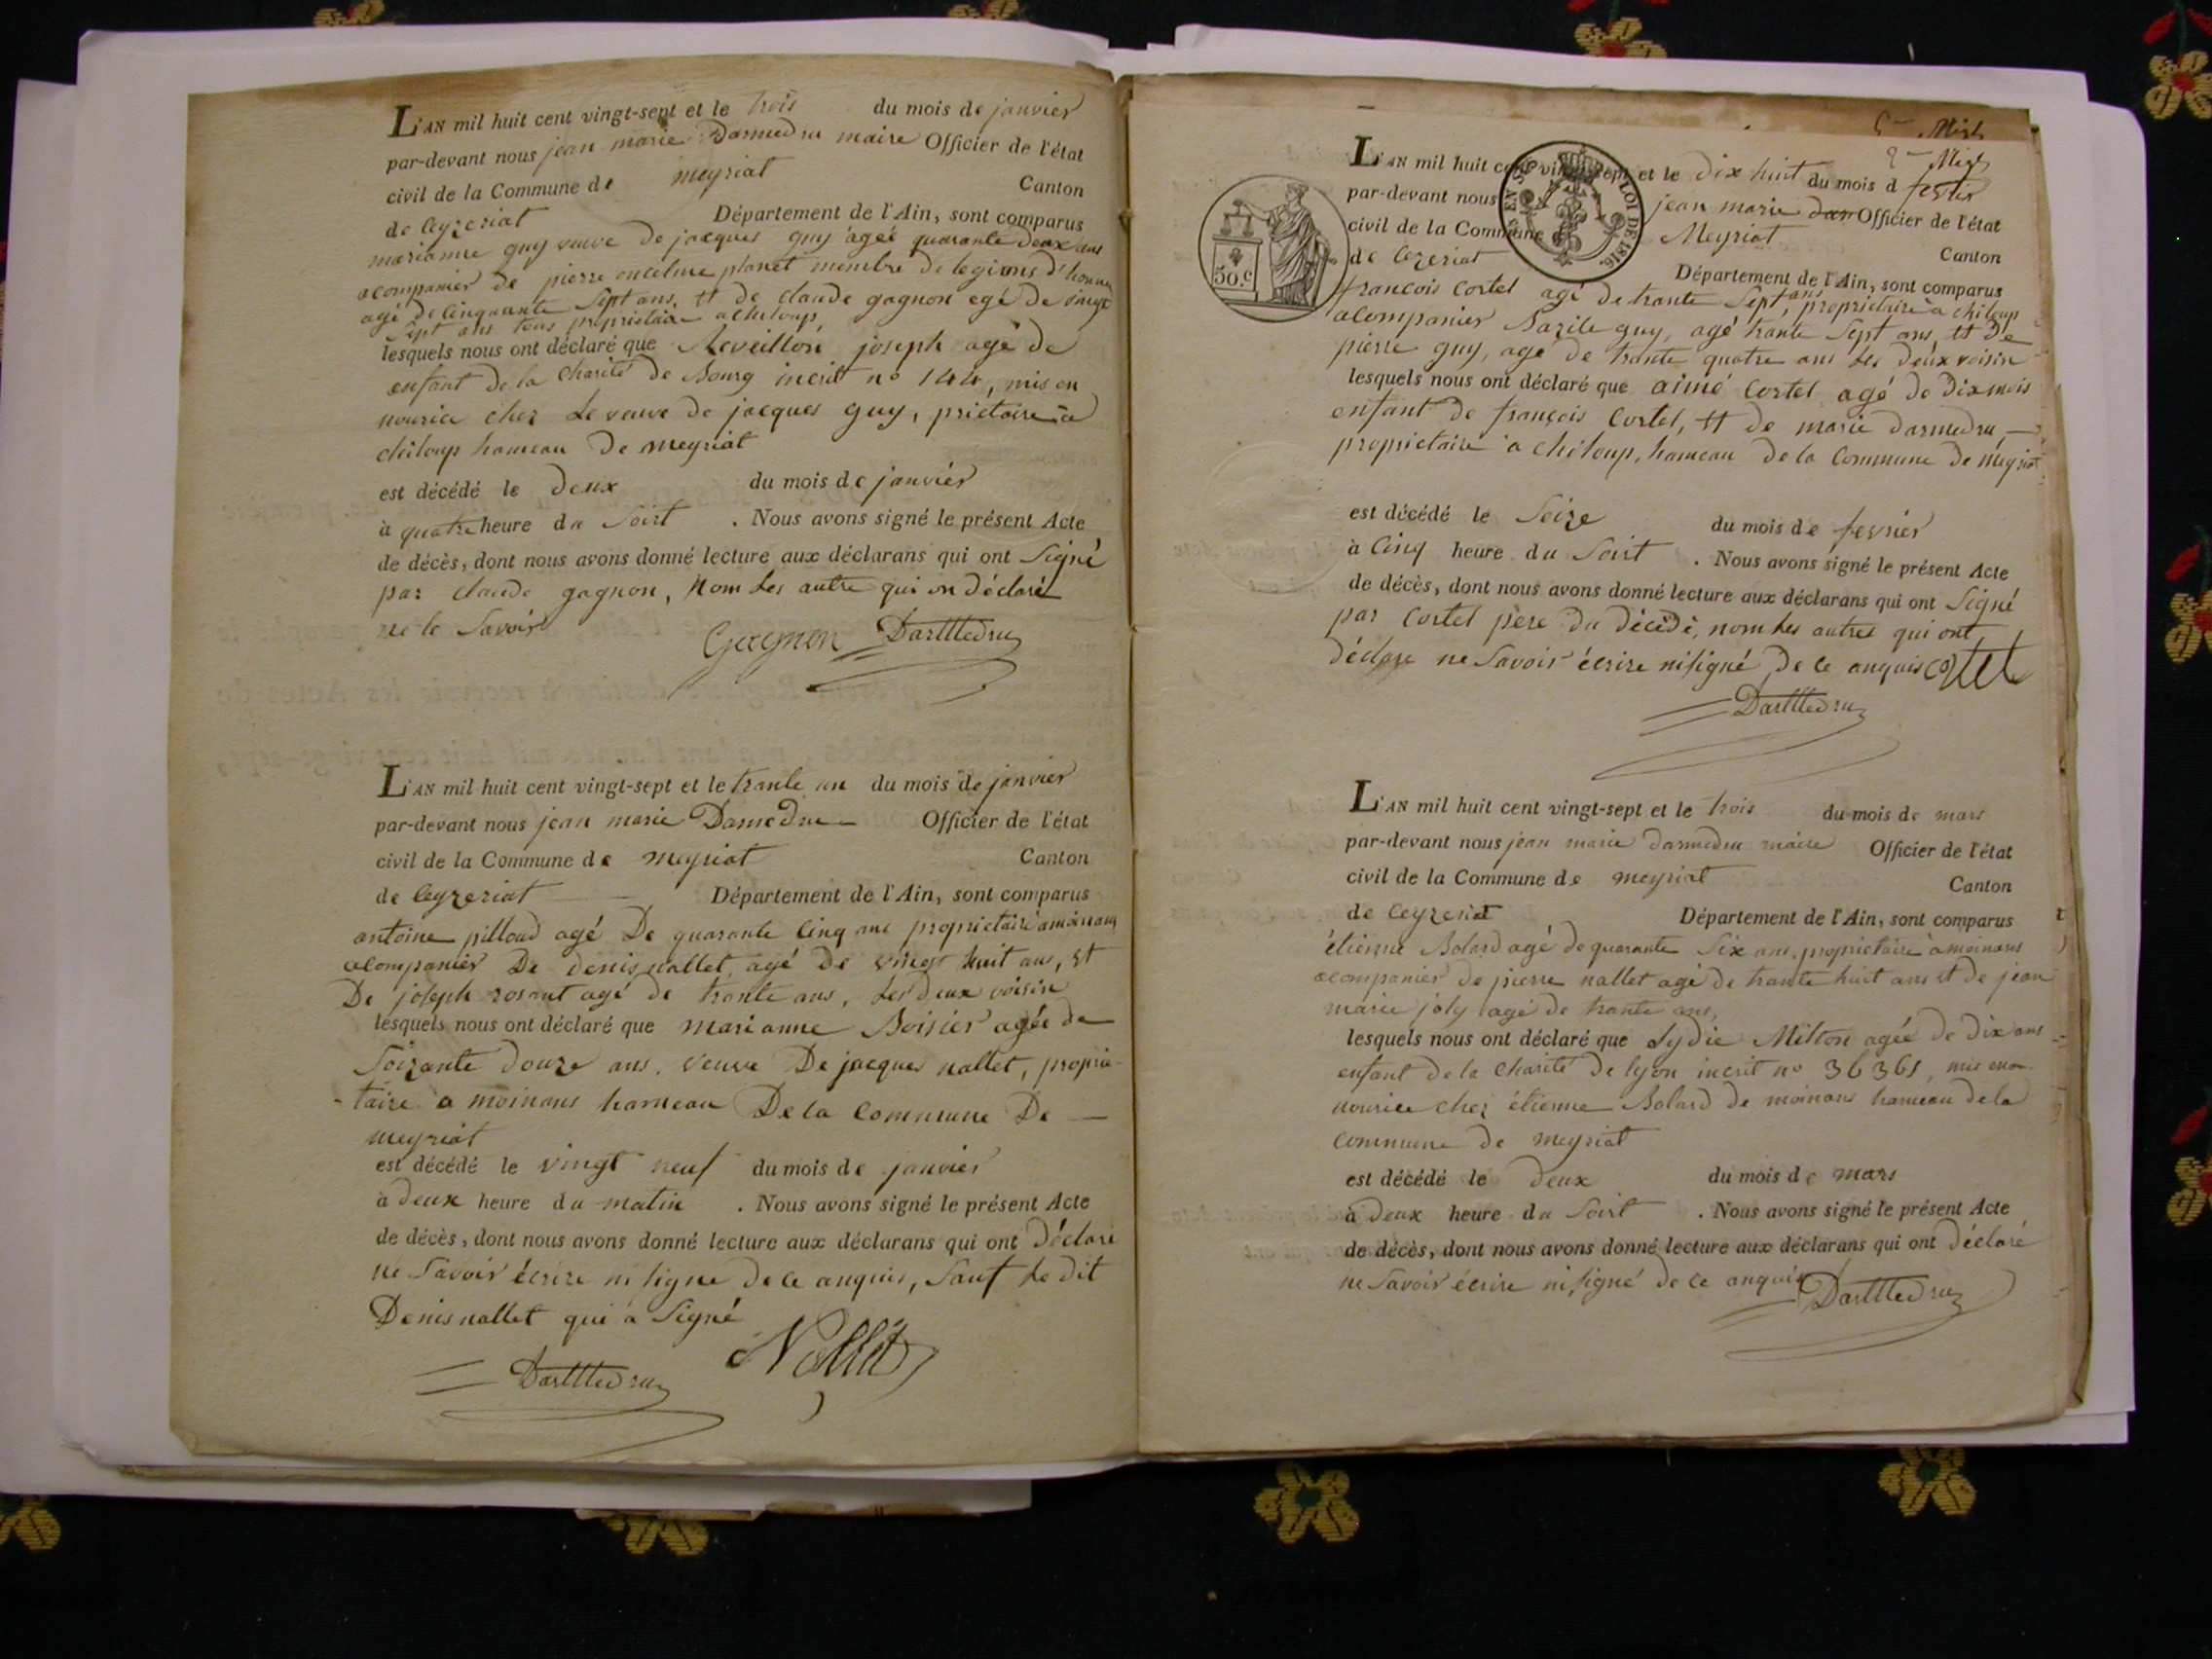 L'AN mil huit cent vingt-sept et le trois du mois de janvier
par-devant nous jean marie Darmedru maire Officier de l'état
civil de la Commune de meyriat Canton
de Ceyzeriat Département de l'Ain, sont comparus
marianne guy veuve de jacques guy agée quarante deux ans
acompanier de pierre planet membre de legions d'honneur
agé de cinquante sept ans, et de claude gagnon egé de vingt
sept ans tous propriétaire a chiloup
lesquels nous ont déclaré que Reveillon joseph agé de
enfant de la charité de Bourg incrit nº 144, mis en
nourice chez Le veuve de jacques guy, priétaire a
chiloup hameau De meyriat
est décédé le Deux du mois de janvier
à quatre heure du Soirt . Nous avons signé le présent Acte
de décès, dont nous avons donné lecture aux déclarans qui ont Signé
par claude gagnon, Nom Les autre qui on déclaré
ne le Savoir
Gagnon Darmedru
L'AN mil huit cent vingt-sept et le trante un du mois de janvier
par-devant nous jean marie Darmedru Officier de l'état
civil de la Commune de meyriat Canton
de Ceyzeriat Département de l'Ain, sont comparus
antoine pilloud agé De quarante Cinq ans proprietaire a moinans
acompanier De denis nallet, agé de vingt huit ans, et
De joseph rosant agé de trante ans, Les deux voisin
lesquels nous ont déclaré que marianne Boisier agée de
Soizante douze ans, veuve De jacques nallet, proprie-
taire a moinans hameau De la Commune De
meyriat
est décédé le vingt neuf du mois de janvier
à deux heure du matin . Nous avons signé le présent Acte
de décès, dont nous avons donné lecture aux déclarans qui ont Déclaré
ne Savoir écrire ni signe de ce anquis, Sauf Le dit
Denis nallet qui a Signé
Nallet
Darmedru
L'AN mil huit cent vingt-sept et le Dix huit du mois d fevrier
par-devant nous jean marie dar Officier de l'état
civil de la Commune de Meyriat Canton
de Cezeriat Département de l'Ain, sont comparus
50.C
LOI DE 1816.
francois Cortet agé de trante Sept ans, proprietaire à chiloup
acompanier Bazile guy, agé trante Sept ans, et De
pierre guy, agé de trante quatre ans Les deux voisin
lesquels nous ont déclaré que aimé Cortet agé de Dix mois
enfant de françois Cortet, et de marie darmedru,
proprietaire a chiloup, hameau de la Commune de meyriat
est décédé le Seize du mois de fevrier
à Cinq heure du Soirt . Nous avons signé le présent Acte
de décès, dont nous avons donné lecture aux déclarans qui ont Signé
par Cortet père du décédé, nom Les autres qui ont
déclare ne Savoir écrire ni signé de ce anquis cortet
Darmedru
L'AN mil huit cent vingt-sept et le trois du mois de mars
par-devant nous jean marie darmedru maire Officier de l'état
civil de la Commune de meyriat Canton
de Ceyzeriat Département de l'Ain, sont comparus
étienne Bolard agé de quarante Six ans, proprietaire à moinans
acompanier de pierre nallet agé de trante huit ans et de jean
marie joly agé de trante ans,
lesquels nous ont déclaré que Lydie Milton agée de Dix ans
enfant de la charité De lyon incrit nº 36361, mis en
nourice chez étienne Bolard de moinans hameau de la
commune de meyriat
est décédé le Deux du mois de mars
à Deux heure du Soirt . Nous avons signé le présent Acte
de décès, dont nous avons donné lecture aux déclarans qui ont Déclaré
ne Savoir écrire ni signé de ce anquis Darmedru